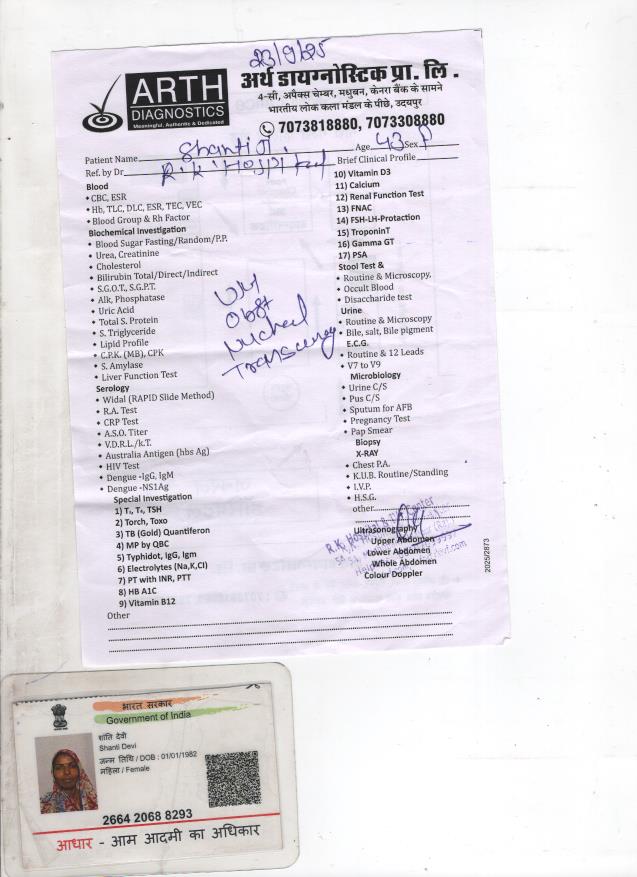 23/9/25
ARTH
DIAGNOSTICS
Meaningful, Authentic & Dedicated
अर्थ डायग्नोस्टिक प्रा. लि.
4-सी, अपैक्स चेम्बर, मधुबन, केनरा बैंक के सामने
भारतीय लोक कला मंडल के पीछे, उदयपुर
7073818880, 7073308880
Patient Name Shanti Age 43 Sex F
Ref. by Dr R.K. Hospital Brief Clinical Profile
Blood
• CBC, ESR
• Hb, TLC, DLC, ESR, TEC, VEC
• Blood Group & Rh Factor
Biochemical Investigation
• Blood Sugar Fasting/Random/P.P.
• Urea, Creatinine
• Cholesterol
• Bilirubin Total/Direct/Indirect
• S.G.O.T., S.G.P.T.
• Alk, Phosphatase
• Uric Acid
• Total S. Protein
• S. Triglyceride
• Lipid Profile
• C.P.K. (MB), CPK
• S. Amylase
• Liver Function Test
Serology
• Widal (RAPID Slide Method)
• R.A. Test
• CRP Test
• A.S.O. Titer
• V.D.R.L./k.T.
• Australia Antigen (hbs Ag)
• HIV Test
• Dengue -IgG, IgM
• Dengue -NS1Ag
Special Investigation
1) T₃, T₄, TSH
2) Torch, Toxo
3) TB (Gold) Quantiferon
4) MP by QBC
5) Typhidot, IgG, Igm
6) Electrolytes (Na,K,Cl)
7) PT with INR, PTT
8) HB A1C
9) Vitamin B12
Other
10) Vitamin D3
11) Calcium
12) Renal Function Test
13) FNAC
14) FSH-LH-Protection
15) TroponinT
16) Gamma GT
17) PSA
Stool Test &
• Routine & Microscopy,
• Occult Blood
• Disaccharide test
Urine
• Routine & Microscopy
• Bile, salt, Bile pigment
E.C.G.
• Routine & 12 Leads
• V7 to V9
Microbiology
• Urine C/S
• Pus C/S
• Sputum for AFB
• Pregnancy Test
• Pap Smear
Biopsy
X-RAY
• Chest P.A.
• K.U.B. Routine/Standing
• I.V.P.
• H.S.G.
other
Ultrasonography
Upper Abdomen
Lower Abdomen
Whole Abdomen
Colour Doppler
2025/2873
भारत सरकार
Government of India
शांति देवी
Shanti Devi
जन्म तिथि / DOB : 01/01/1982
महिला / Female
2664 2068 8293
आधार - आम आदमी का अधिकार